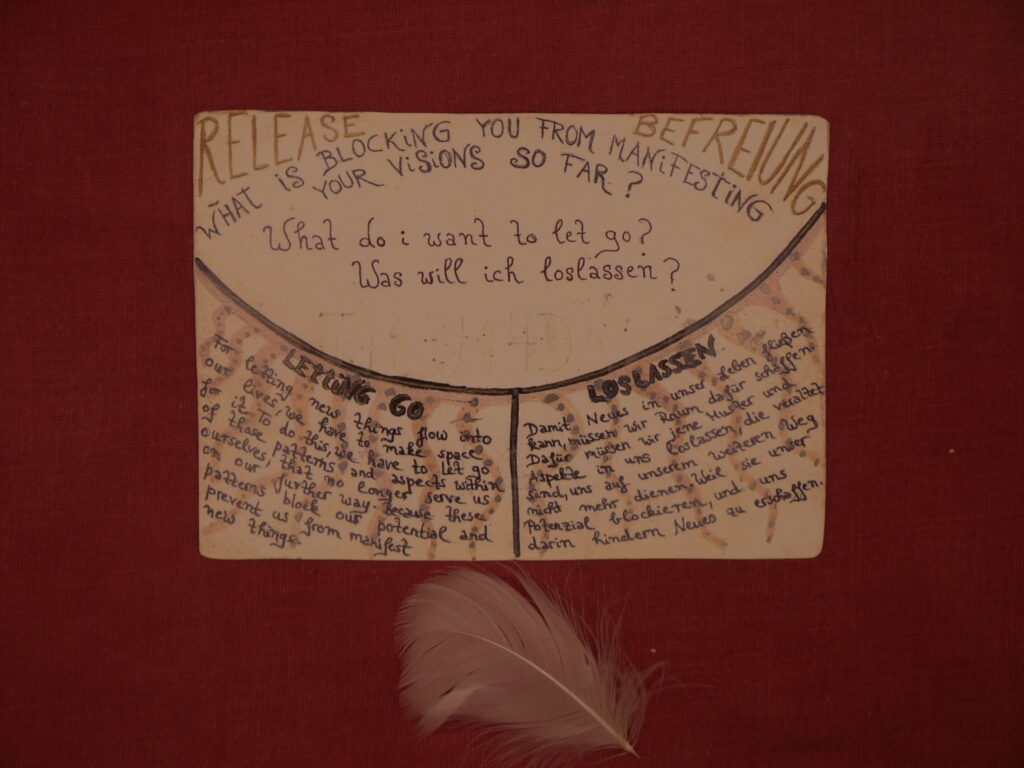 RELEASE
BEFREIUNG
WHAT IS BLOCKING YOU FROM MANiFESTiNG
YOUR ViSiONS SO FAR?
What do i want to let go?
Was will ich loslassen?
LETTING GO
For letting new things flow into
our lives, we have to make space
for it. To do this, we have to let go
of those patterns and aspects within
ourselves, that no longer serve us
on our further way. Because these
patterns block our potential and
prevent us from manifest
new things.
LOSLASSEN
Damit Neues in unser Leben fließen
kann, müssen wir Raum dafür schaffen.
Dafür müssen wir jene Muster und
Aspekte in uns loslassen, die veraltet
sind, uns auf unserem weiteren Weg
nicht mehr dienen. Weil sie unser
Potenzial blockieren, und uns
darin hindern Neues zu erschaffen.